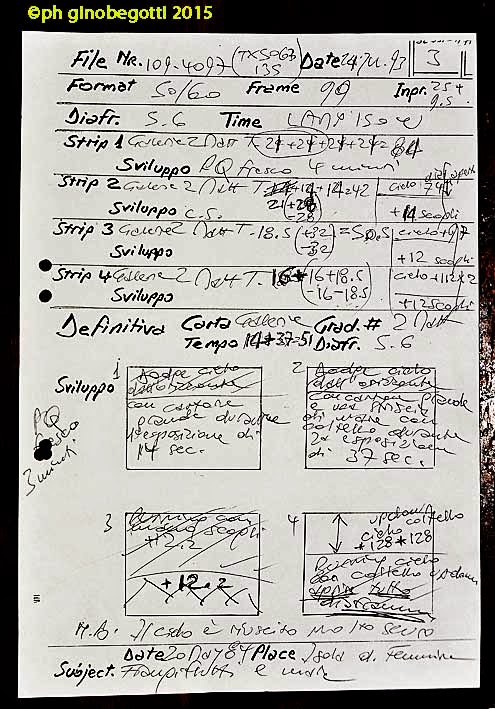 ©ph ginobegotti 2015
File Nr. 109-4097 (TX5063 135) Date 3
Format 50/60 Frame 9A Inpr. 25+ 9.5
Diafr. 5.6 Time
Strip 1 Gallerie 2 Matt T. 21+21+21+21= 84
Sviluppo PQ fresco 4 minuti
Strip 2 Gallerie 2 Matt T. +14+14=42 cielo
Sviluppo c.s. 21+28 -28 +14 scogli
Strip 3 Gallerie 2 Matt T. 18.5 (+32 -32) =50.5 cielo+97
Sviluppo +12 scogli
Strip 4 Gallerie 2 Matt T. 16+16+18.5 cielo+112x2
Sviluppo (-16-18.5) +12 scogli
Definitiva Carta Gallerie Grad.# 2 Matt
Tempo 14+37=51 Diafr. 5.6
Sviluppo PQ fresco 3 minuti
1
con cartone
grande durante
1ª esposizione di
14 sec.
2
dall'orizzonte
con cartone grande
e una striscia
di mare con
coltello durante
2ª esposizione
di 37 sec.
3
Burning con
mano scogli
+12.2
+12.2
4
updown coltello
cielo
+128+128
Burning cielo
con coltello updown
N.B. Il cielo è riuscito molto scuro
Date 20 May 84 Place Isola d. Femmine
Subject. e mare